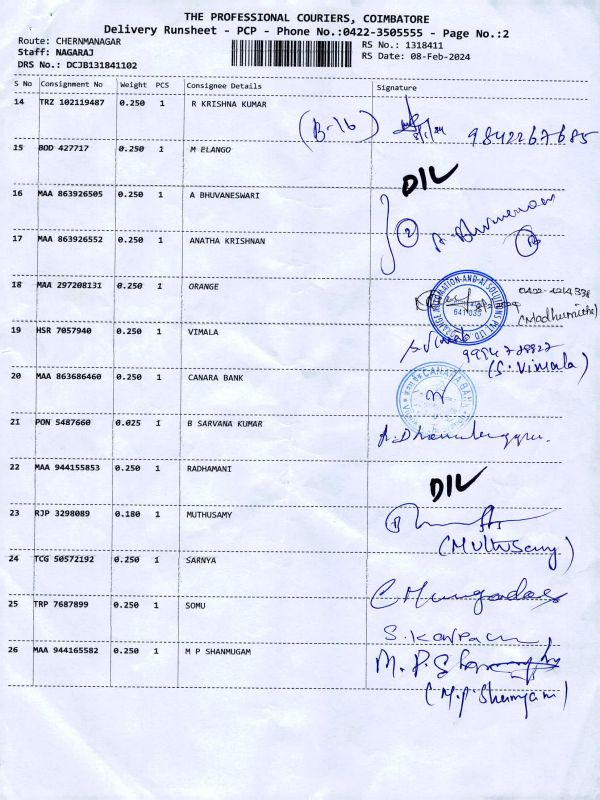 THE PROFESSIONAL COURIERS, COIMBATORE
Delivery Runsheet - PCP - Phone No.:0422-3505555 - Page No.:2
Route: CHERNMANAGAR
RS No.: 1318411
Staff: NAGARAJ
RS Date: 08-Feb-2024
DRS No.: DCJB131841102
S No Consignment No Weight PCS Consignee Details Signature
14 TRZ 102119487 0.250 1 R KRISHNA KUMAR
(B-16) 9842267685
15 BOD 427717 0.250 1 M ELANGO
DIL
16 MAA 863926505 0.250 1 A BHUVANESWARI
2
17 MAA 863926552 0.250 1 ANATHA KRISHNAN
18 MAA 297208131 0.250 1 ORANGE
641 035
(Madhumitha)
19 HSR 7057940 0.250 1 VIMALA
(S. Vimala)
20 MAA 863686460 0.250 1 CANARA BANK
CANARA BANK
21 PON 5487660 0.025 1 B SARVANA KUMAR
22 MAA 944155853 0.250 1 RADHAMANI
DIL
23 RJP 3298089 0.180 1 MUTHUSAMY
(Muthusamy)
24 TCG 50572192 0.250 1 SARNYA
25 TRP 7687899 0.250 1 SOMU
26 MAA 944165582 0.250 1 M P SHANMUGAM